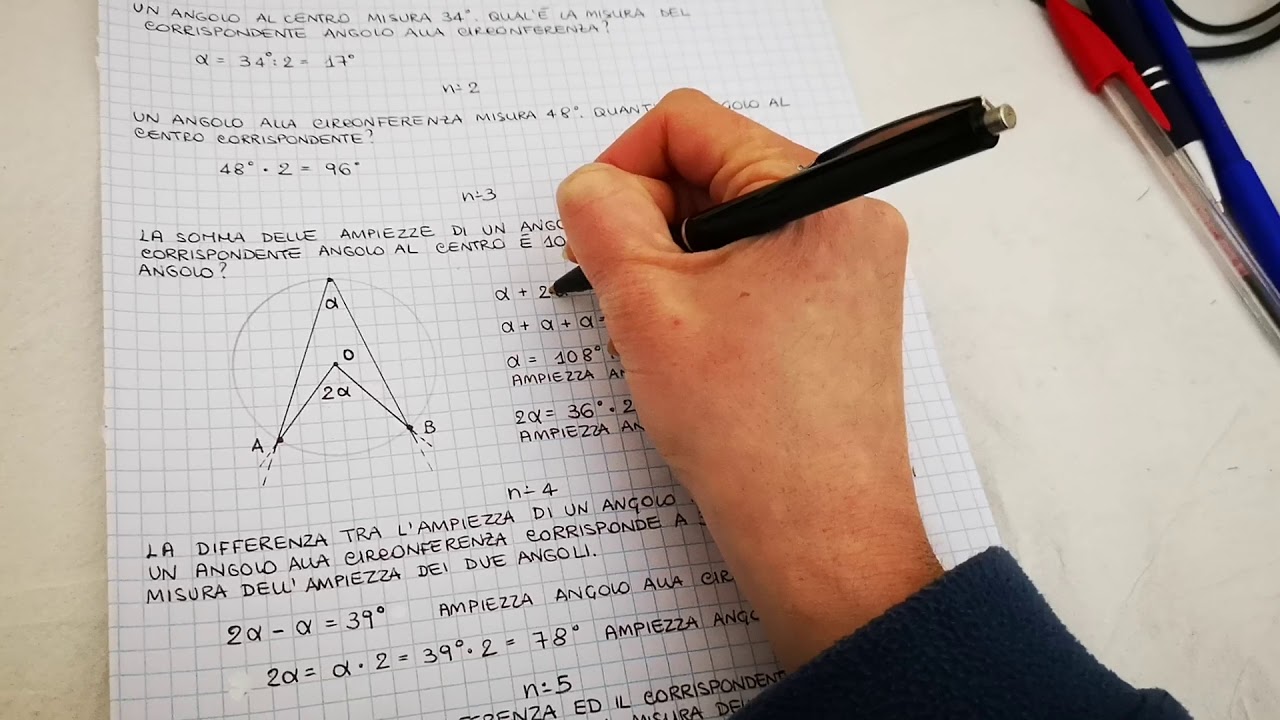 UN ANGOLO AL CENTRO MISURA 34°. QUAL'È LA MISURA DEL
CORRISPONDENTE ANGOLO ALLA CIRCONFERENZA?
α = 34°:2 = 17°
n° 2
UN ANGOLO ALLA CIRCONFERENZA MISURA 48°. QUANT GOLO AL
CENTRO CORRISPONDENTE?
48° · 2 = 96°
n° 3
LA SOMMA DELLE AMPIEZZE DI UN ANGO
CORRISPONDENTE ANGOLO AL CENTRO È 10
ANGOLO?
α + 2
α + α + α =
α = 108°
AMPIEZZA AN
2α = 36° · 2
AMPIEZZA AN
α
O
2α
A
B
n° 4
LA DIFFERENZA TRA L'AMPIEZZA DI UN ANGOLO
UN ANGOLO ALLA CIRCONFERENZA CORRISPONDE A 3
MISURA DELL'AMPIEZZA DEI DUE ANGOLI.
2α - α = 39° AMPIEZZA ANGOLO ALLA CIR
2α = α · 2 = 39° · 2 = 78° AMPIEZZA ANGO
n° 5
FERENZA ED IL CORRISPONDENT
MISURA DEL